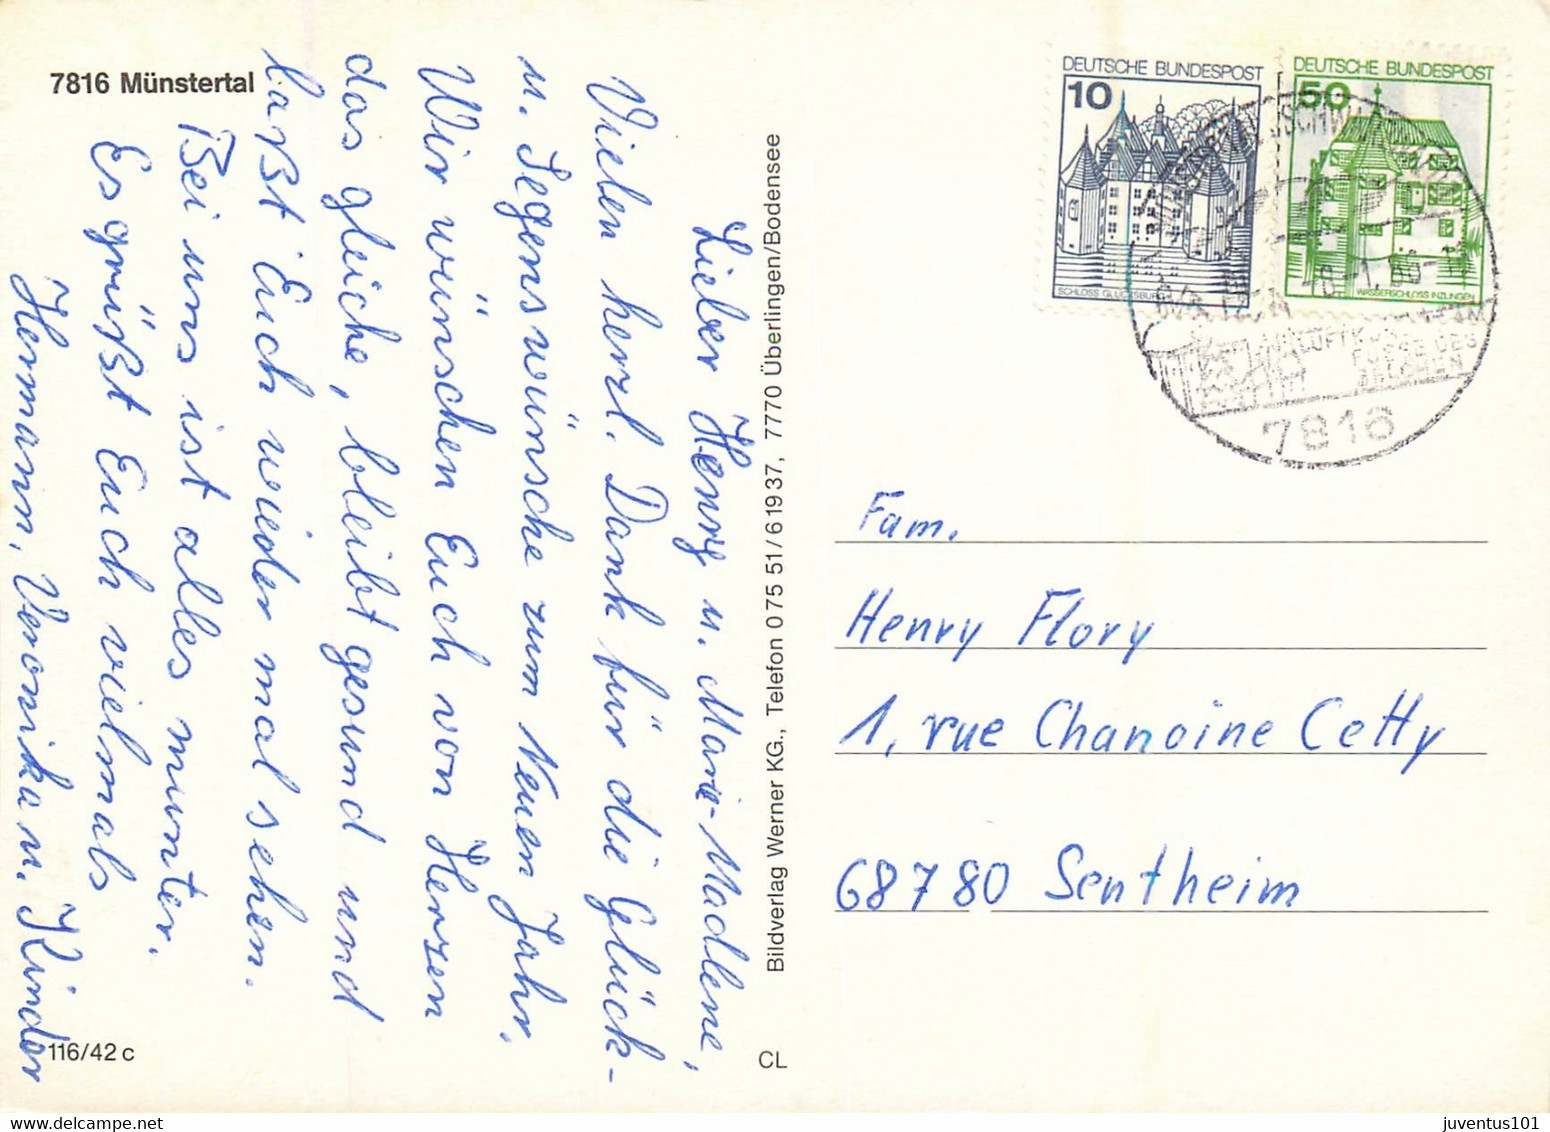 7816 Münstertal
Lieber Henry u. Marie-Madlene,
Vielen herzl. Dank für die Glück-
u. Segenswünsche zum Neuen Jahr.
Wir wünschen Euch von Herzen
das gleiche, bleibt gesund und
laßt Euch wieder mal sehen.
Bei uns ist alles munter.
Es grüßt Euch vielmals
Hermann, Veronika u. Kinder
116/42 c
Bildverlag Werner KG., Telefon 0 75 51 / 6 19 37, 7770 Überlingen/Bodensee
CL
DEUTSCHE BUNDESPOST
10
SCHLOSS GLÜCKSBURG
DEUTSCHE BUNDESPOST
50
WASSERSCHLOSS INZLINGEN
LUFTKUR
FUSSE DES
BELCHEN
7816
Fam.
Henry Flory
1, rue Chanoine Cetty
68780 Sentheim
juventus101